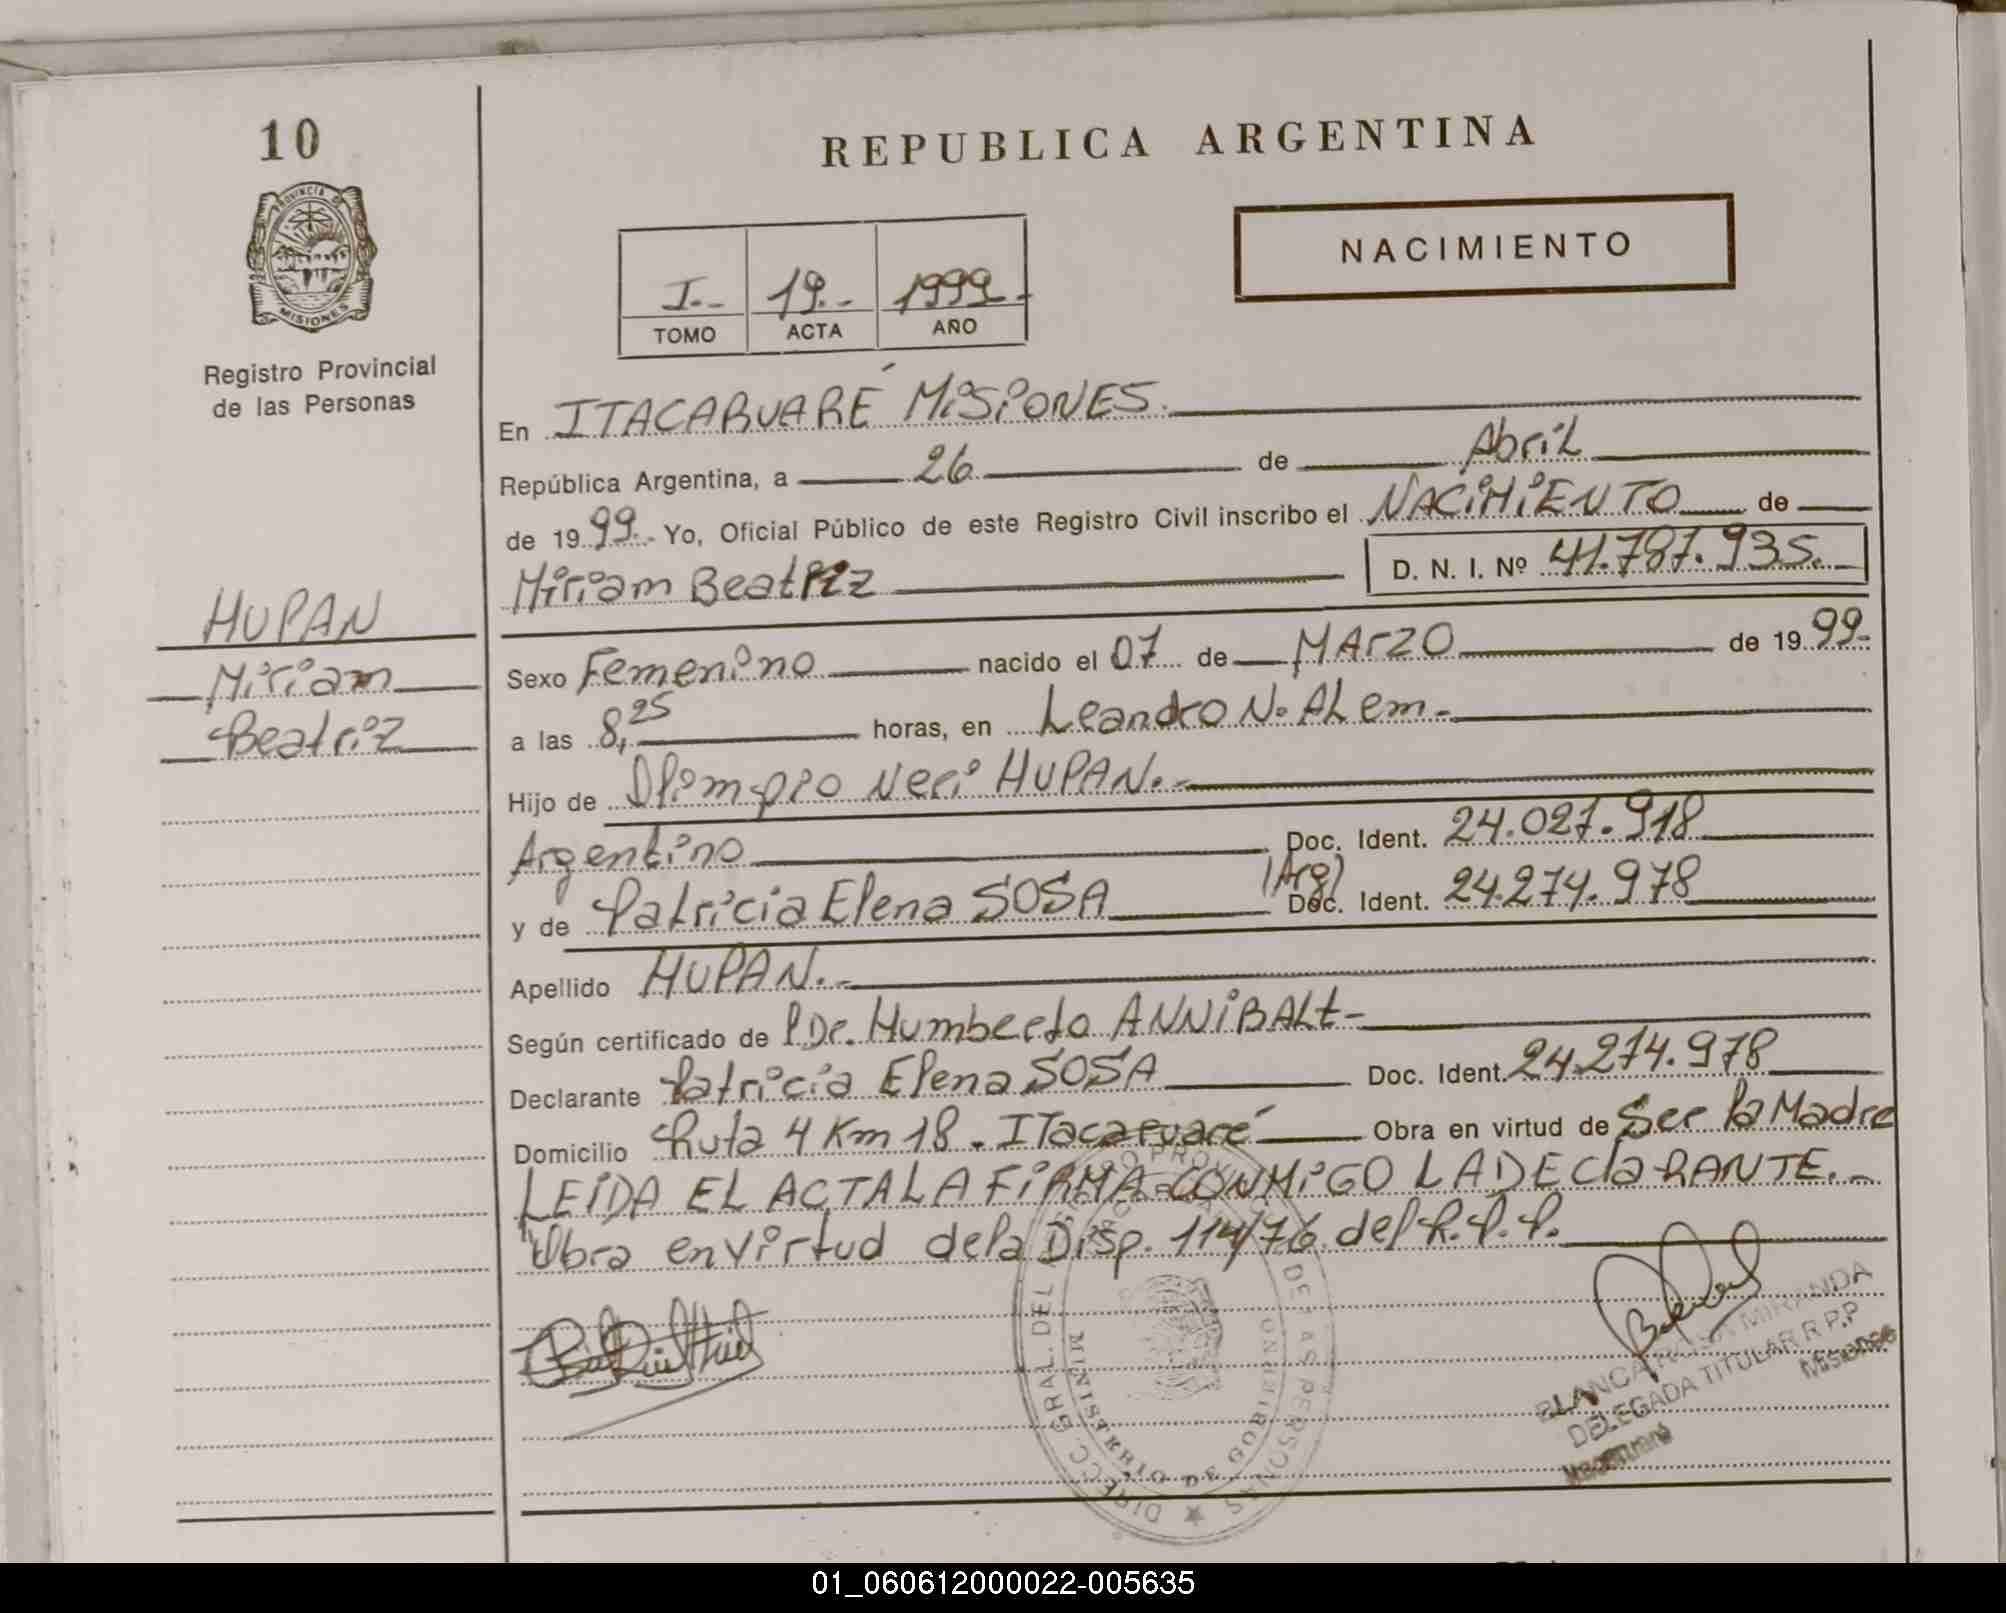 10
REPUBLICA ARGENTINA
PROVINCIA DE
MISIONES
NACIMIENTO
I.- 19.- 1999.-
TOMO ACTA AÑO
Registro Provincial
de las Personas
En ITACARUARÉ MISIONES.
República Argentina, a 26 de Abril
de 1999.- Yo, Oficial Público de este Registro Civil inscribo el NACIMIENTO de
Miriam Beatriz D. N. I. Nº 41.787.935.
HUPAN
Miriam
Beatriz
Sexo Femenino nacido el 07 de MARZO de 1999-
a las 8,25 horas, en Leandro N. ALem.-
Hijo de Olimpio Neri HUPAN.-
Argentino Doc. Ident. 24.027.918
y de Patricia Elena SOSA (Arg) Doc. Ident. 24.274.978
Apellido HUPAN.-
Según certificado de Dr. Humberto
Declarante Patricia Elena SOSA Doc. Ident. 24.274.978
Domicilio Ruta 4 Km 18. ITacaruaré Obra en virtud de Ser la Madre
LEIDA EL ACTA LA FIRMA CONMIGO LA DEClaRANTE.-
Obra en virtud de la Disp. 114/76 del R.P.P.
DIRECC. GRAL. DEL PROV. DE LAS PERSONAS
MINISTERIO DE GOBIERNO
BLANCA ROSA MIRANDA
DELEGADA TITULAR R.P.P
MISIONES
01_060612000022-005635